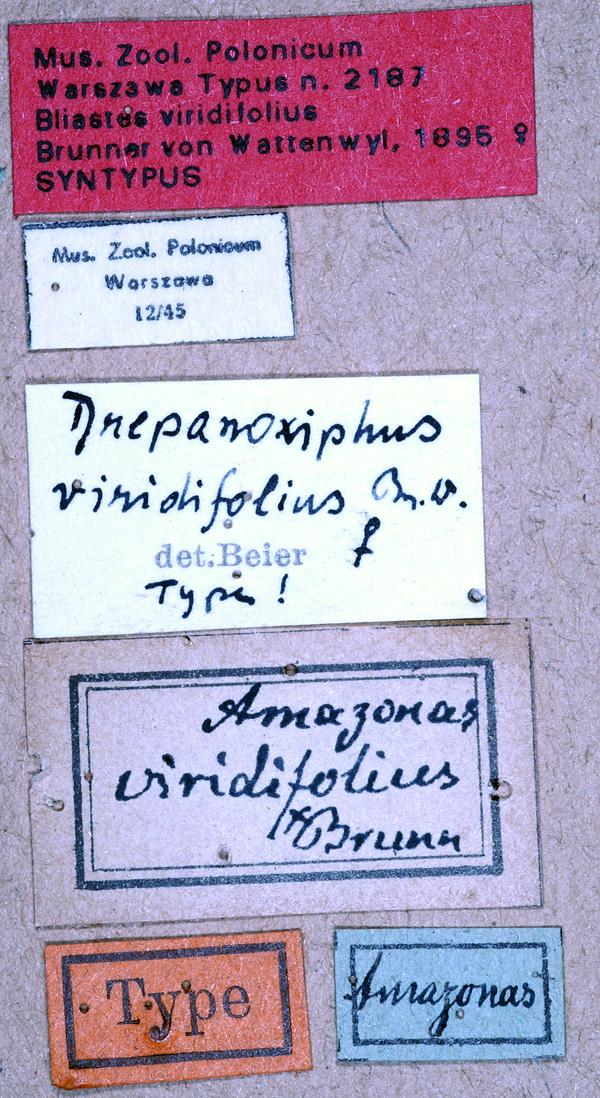 Mus. Zool. Polonicum
Warszawa Typus n. 2187
Bliastes viridifolius
Brunner von Wattenwyl, 1895 ♀
SYNTYPUS
Mus. Zool. Polonicum
Warszawa
12/45
Drepanoxiphus
viridifolius Br. v.
det. Beier ♀
Type !
Amazonas
viridifolius
Brunn
Type
Amazonas